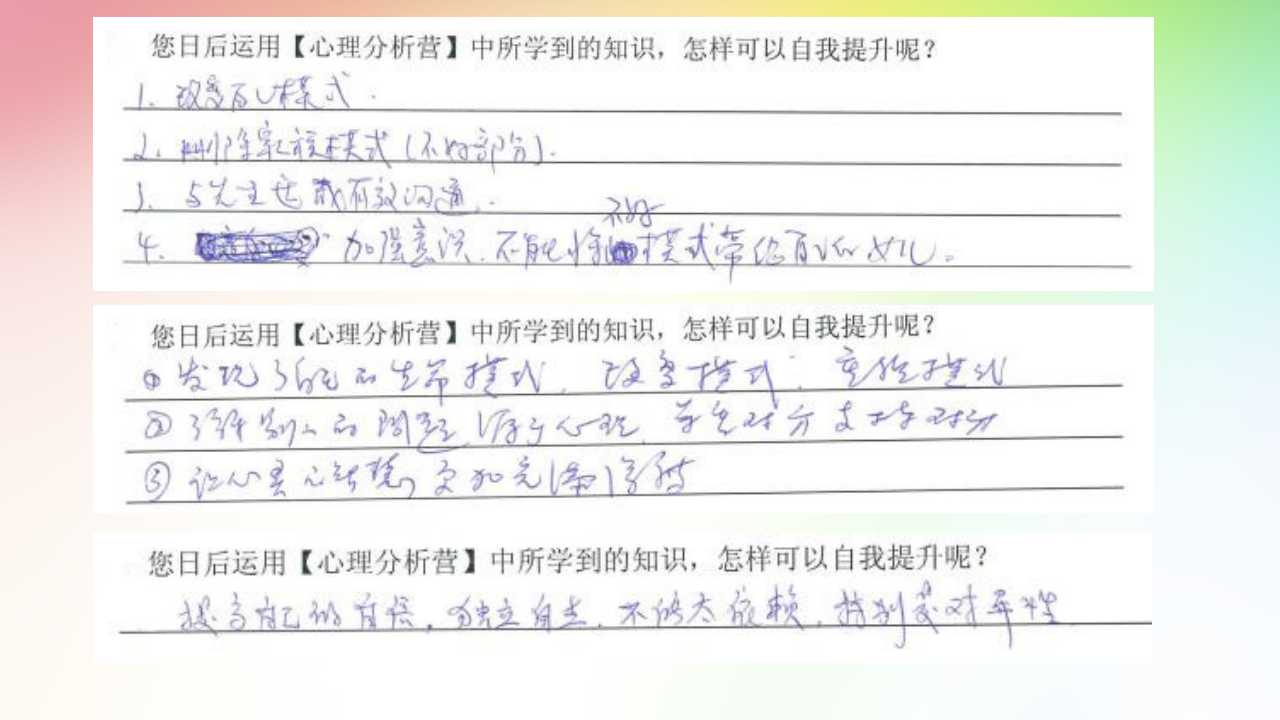 您日后运用【心理分析营】中所学到的知识，怎样可以自我提升呢？
1. 改变自己模式.
2. 删除家族模式(不好部分).
3. 与先生 有效沟通.
4. 加强意识.不能将不好模式带给自己的女儿。
您日后运用【心理分析营】中所学到的知识，怎样可以自我提升呢？
① 发现了自己的生命模式. 改变模式. 重整模式
② 别人的问题,源于心理.
③ 让心灵 更加充满
您日后运用【心理分析营】中所学到的知识，怎样可以自我提升呢？
提高自己的自信,独立自主.不能太依赖.特别是对异性